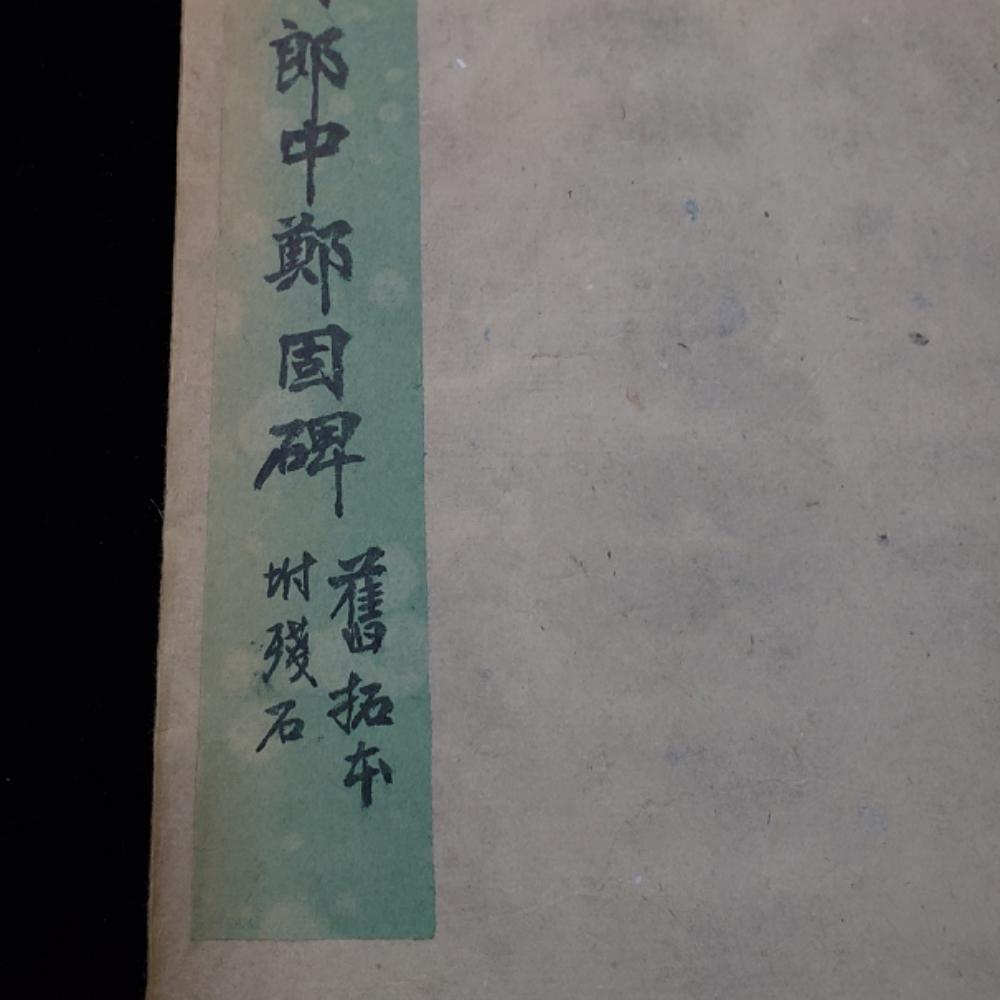 郎中鄭固碑
舊拓本
坿殘石